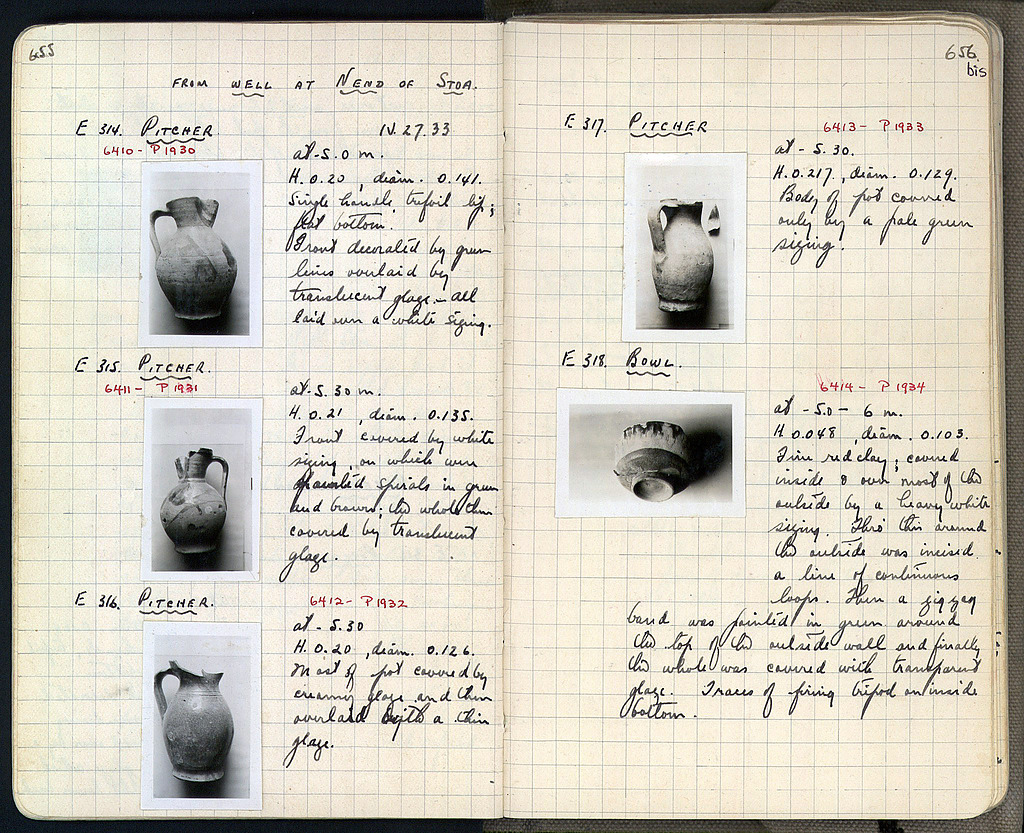 655
FROM WELL AT N END OF STOA.
E 314. PITCHER IV. 27. 33
6410 - P 1930
at -5.0 m.
H. 0.20, diam. 0.141.
Single handle, trefoil lip;
flat bottom.
Front decorated by green
lines overlaid by
translucent glaze - all
laid over a white sizing.
E 315. PITCHER.
6411 - P 1931
at -5.30 m.
H. 0.21, diam. 0.135.
Front covered by white
sizing, on which were
painted spirals in green
and brown; the whole then
covered by translucent
glaze.
E 316. PITCHER.
6412 - P 1932
at -5.30
H. 0.20, diam. 0.126.
Most of pot covered by
creamy glaze and then
overlaid with a thin
glaze.
656
bis
E 317. PITCHER
6413 - P 1933
at -5.30.
H. 0.217, diam. 0.129.
Body of pot covered
only by a pale green
sizing.
E 318. BOWL.
6414 - P 1934
at -5.0 - 6 m.
H 0.048, diam. 0.103.
Fine red clay; covered
inside & over most of the
outside by a heavy white
sizing. Thro' this around
the outside was incised
a line of continuous
loops. Then a zigzag
band was painted in green around
the top of the outside wall and finally
the whole was covered with transparent
glaze. Traces of firing tripod on inside
bottom.